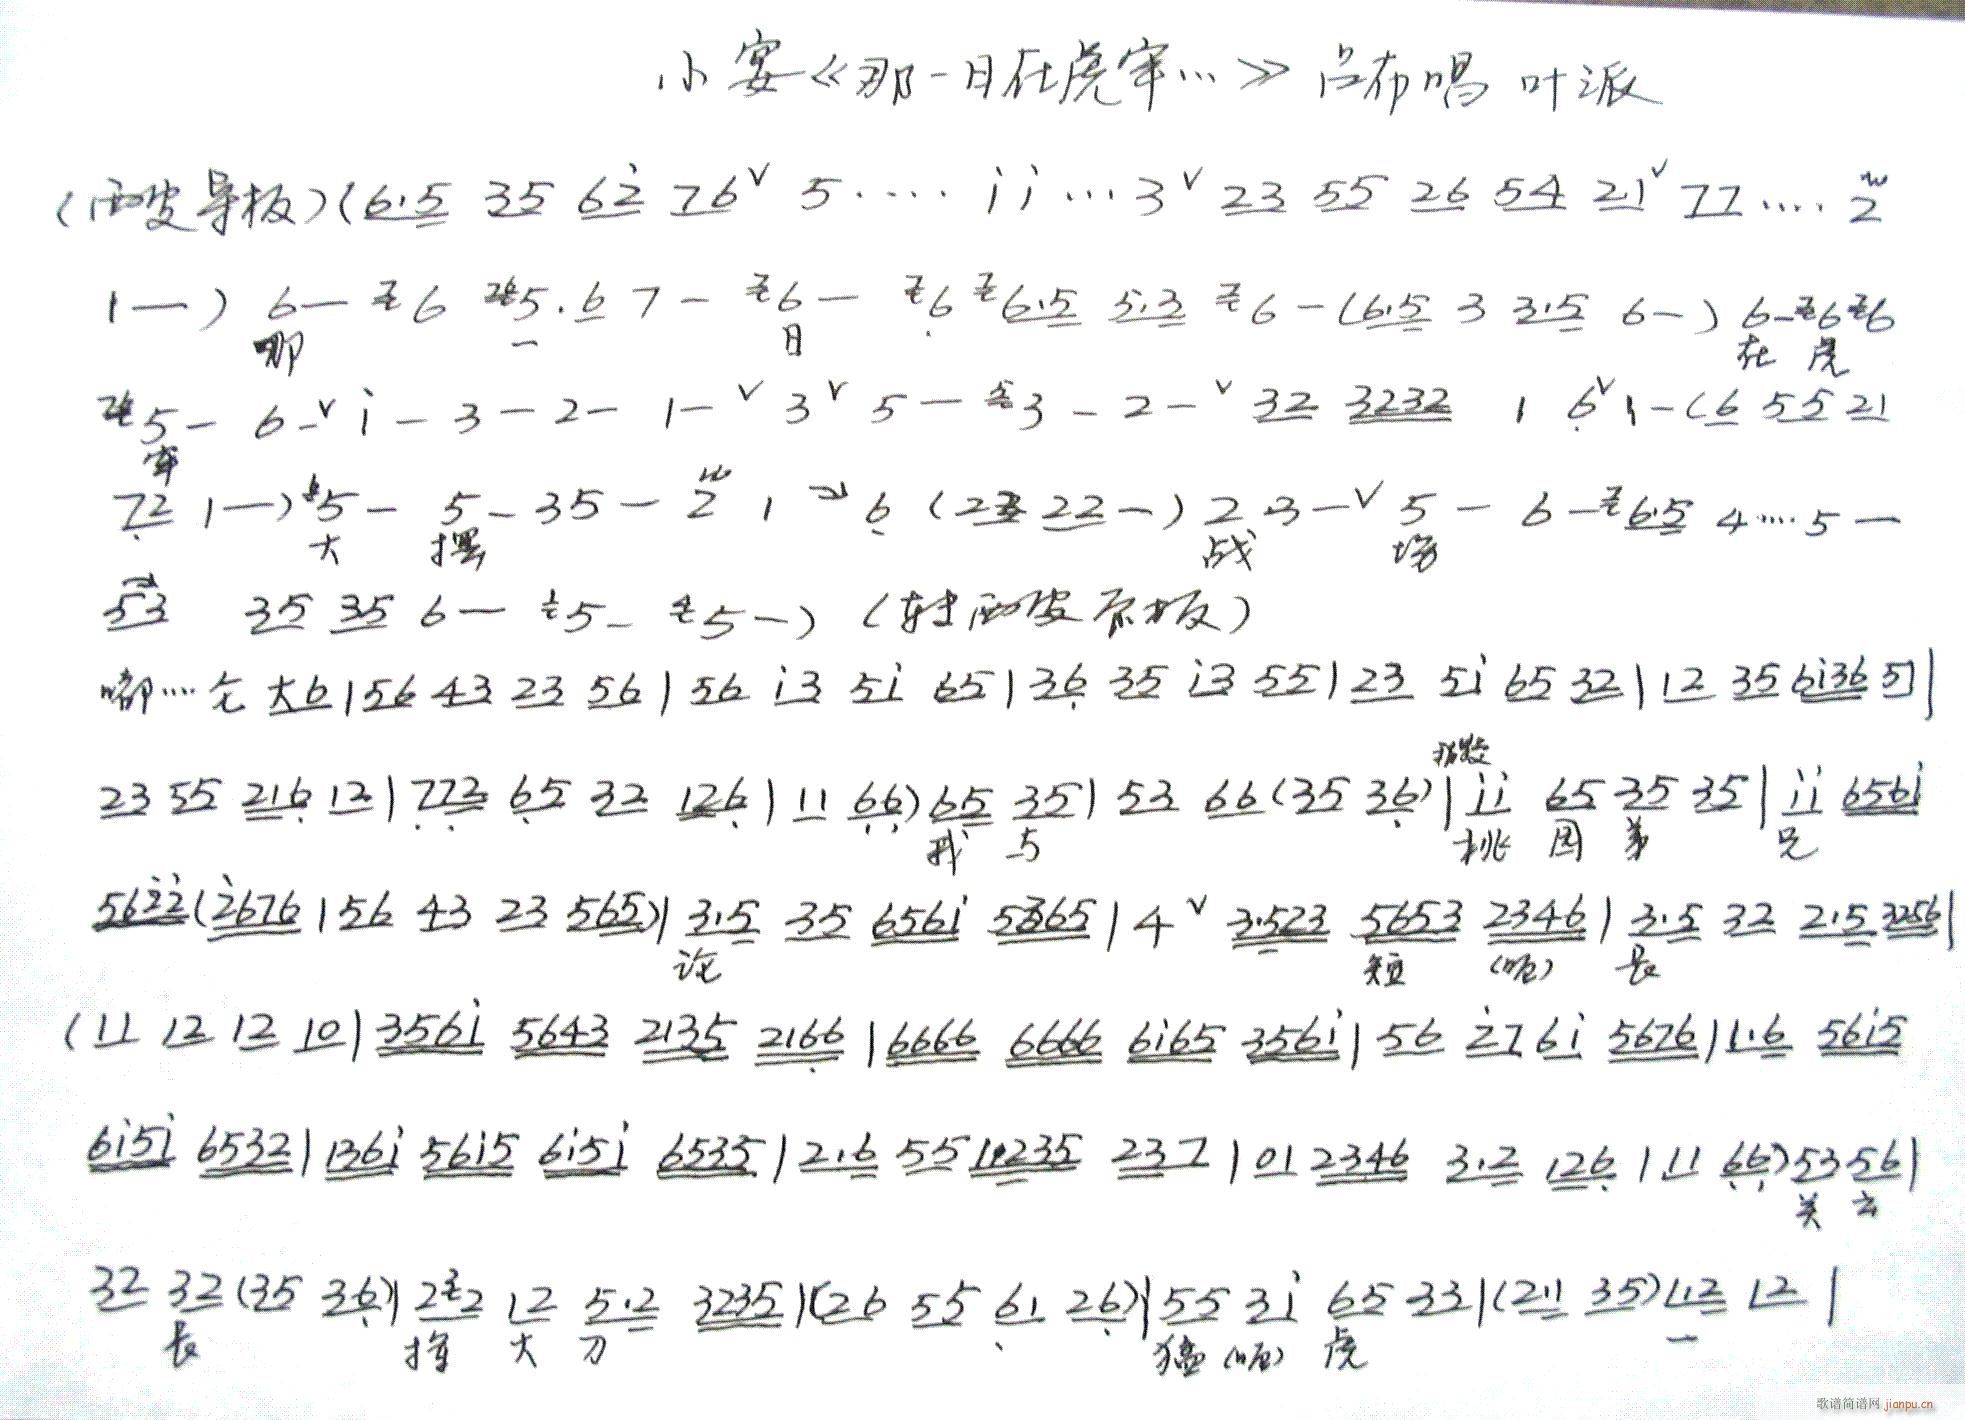 小宴《那一日在虎牢…》吕布唱 叶派
(西皮导板)(6·5 35 6i 76ᵛ 5···· i i ···3ᵛ 23 55 26 54 21ᵛ 77 ···· 2
1—) 6— 6 5·6 7— 6— 6 6·5 5·3 6—(6·5 3 3·5 6—) 6—6 6
那 一 日 在 虎
5— 6—ᵛ i—3—2—1—ᵛ 3ᵛ 5—3—2—ᵛ 32 3232 1 6ᵛ 1—(6 55 21
牢
72 1—) 5— 5—35—2 1 6 (23 22—) 2·3—ᵛ 5—6—6·5 4····5—
大 摆 战 场
53 35 35 6— 5— 5—) (转西皮原板)
嘟···· 仓 大6|56 43 23 56|56 i3 5i 65|36 35 i3 55|23 5i 65 32|12 35 6i36 5|
23 55 216 12|772 65 32 126|11 66)65 35|53 66(35 36)|ii 65 35 35|ii 656i
我 与 桃 园 弟 兄
5622(2676|56 43 23 565)|3·5 35 656i 5365|4ᵛ 3·523 5653 2346|3·5 32 2·5 3256|
论 短 (呃) 长
(11 12 12 10|356i 5643 2135 2166|6666 6666 6i65 356i|56 27 6i 5676|1·6 56i5
6i5i 6532|136i 56i5 6i5i 6535|2·6 55 1·235 237|01 2346 3·2 126|11 66)53 56|
关 云
32 32(35 36)|22 12 5·2 3235|(26 55 61 26)|55 3i 65 33|(211 35)1·2 12|
长 挥 大 刀 猛 (呃) 虎 一
歌谱简谱网 jianpu.cn